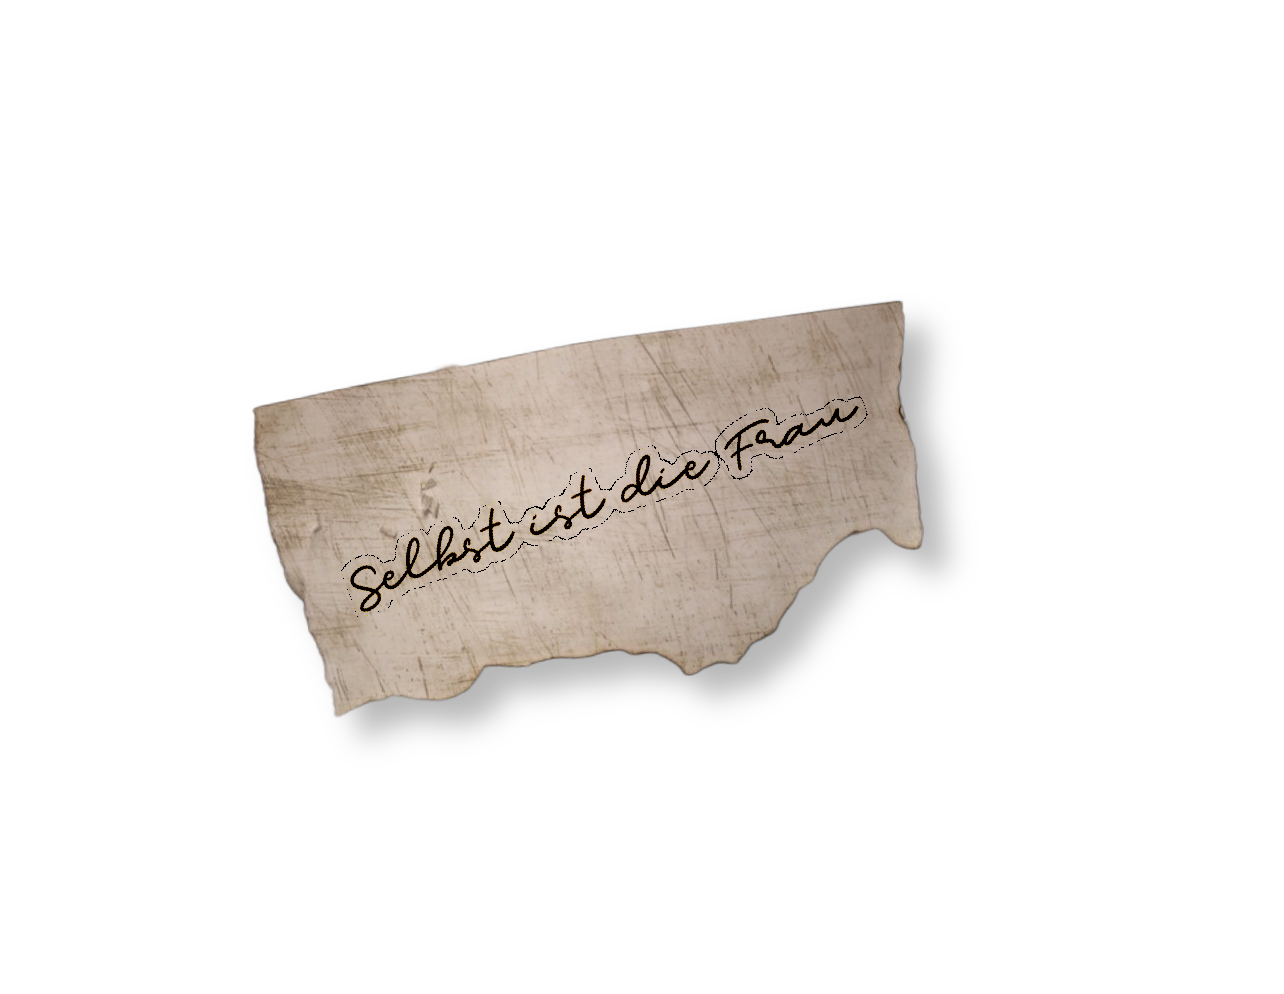 Selbst ist die Frau